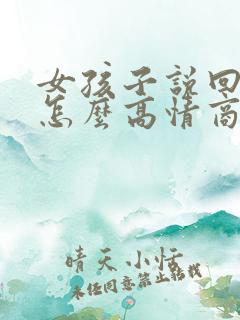 女孩子說回
怎麼高情商
晴天小恬
未经同意禁止转载